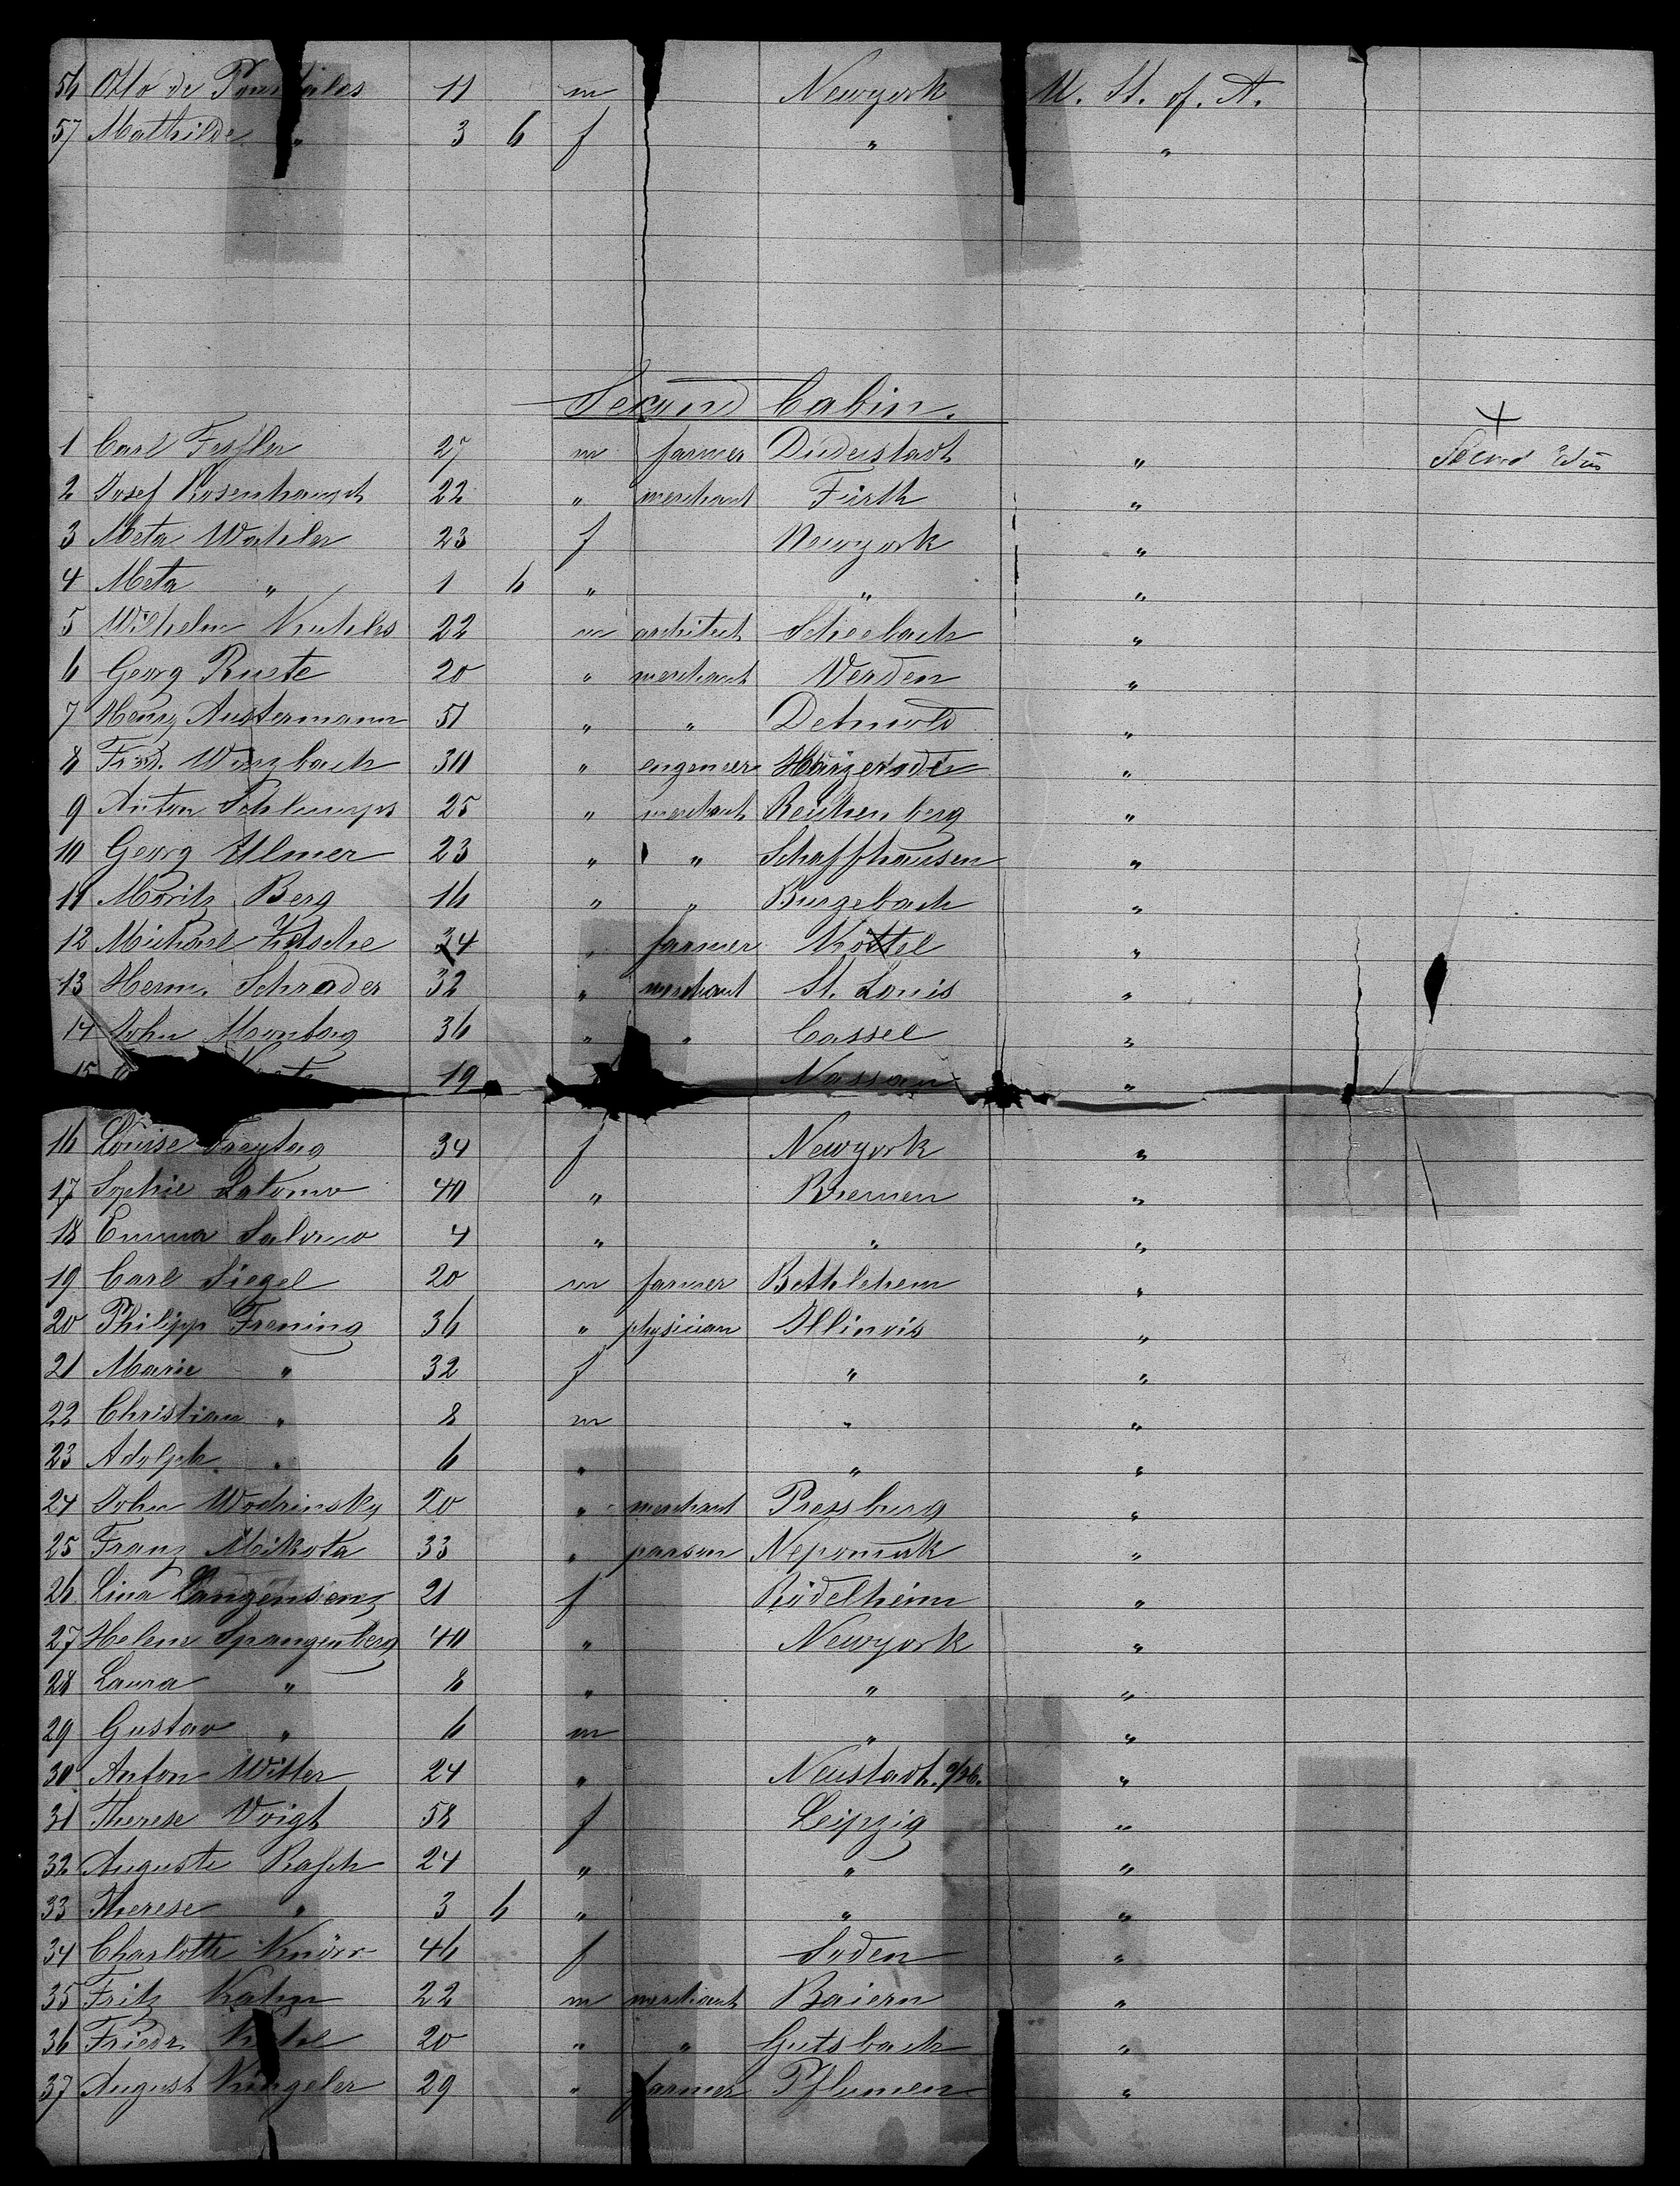 56 Otto de Pourtales 11 m Newyork U. St. of. A.
57 Mathilde " 3 6 f " "
Second Cabin.
1 Carl Fessler 27 m farmer Duderstadt " Second
2 Josef Rosenhaupt 22 " merchant Fürth "
3 Meta Wahler 23 f Newyork "
4 Meta " 1 6 " " "
5 Wilhelm 22 m architect "
6 Georg Ruete 20 " merchant Verden "
7 Henry Austermann 51 " " Detmold "
8 Fred. Wurzbach 30 " engeneer Härzerode "
9 Anton Schlumps 25 " merchant Reichenberg "
10 Georg Ulmer 23 " " Schaffhausen "
11 Moritz Berg 16 " " Burgebach "
12 Michael 34 " farmer "
13 Herm. Schrader 32 " merchant St. Louis "
14 John Montag 36 " " Cassel "
15 19 Nassau "
16 Louise Freytag 34 f Newyork "
17 Sophie Salomo 40 " Bremen "
18 Emma Salomo 4 " " "
19 Carl Siegel 20 m farmer Bethlehem "
20 Philipp Frening 36 " physician Illinois "
21 Marie " 32 f " "
22 Christian " 8 m " "
23 Adolph " 6 " " "
24 John Wodrinsky 20 " merchant Pressburg "
25 Franz Mikota 33 " parson Nepomuk "
26 Lina 21 f Rödelheim "
27 Helene Spangenberg 40 " Newyork "
28 Laura " 8 " " "
29 Gustav " 6 m " "
30 Anton Witter 24 " Neustadt "
31 Therese Voigt 58 f Leipzig "
32 Auguste Rasch 24 " " "
33 Therese " 3 6 " " "
34 Charlotte Knörr 46 f Soden "
35 Fritz Kahn 22 m merchant Baiern "
36 Friedr. 20 " " Gutsbach "
37 August Küngeler 29 " farmer Pflumen "